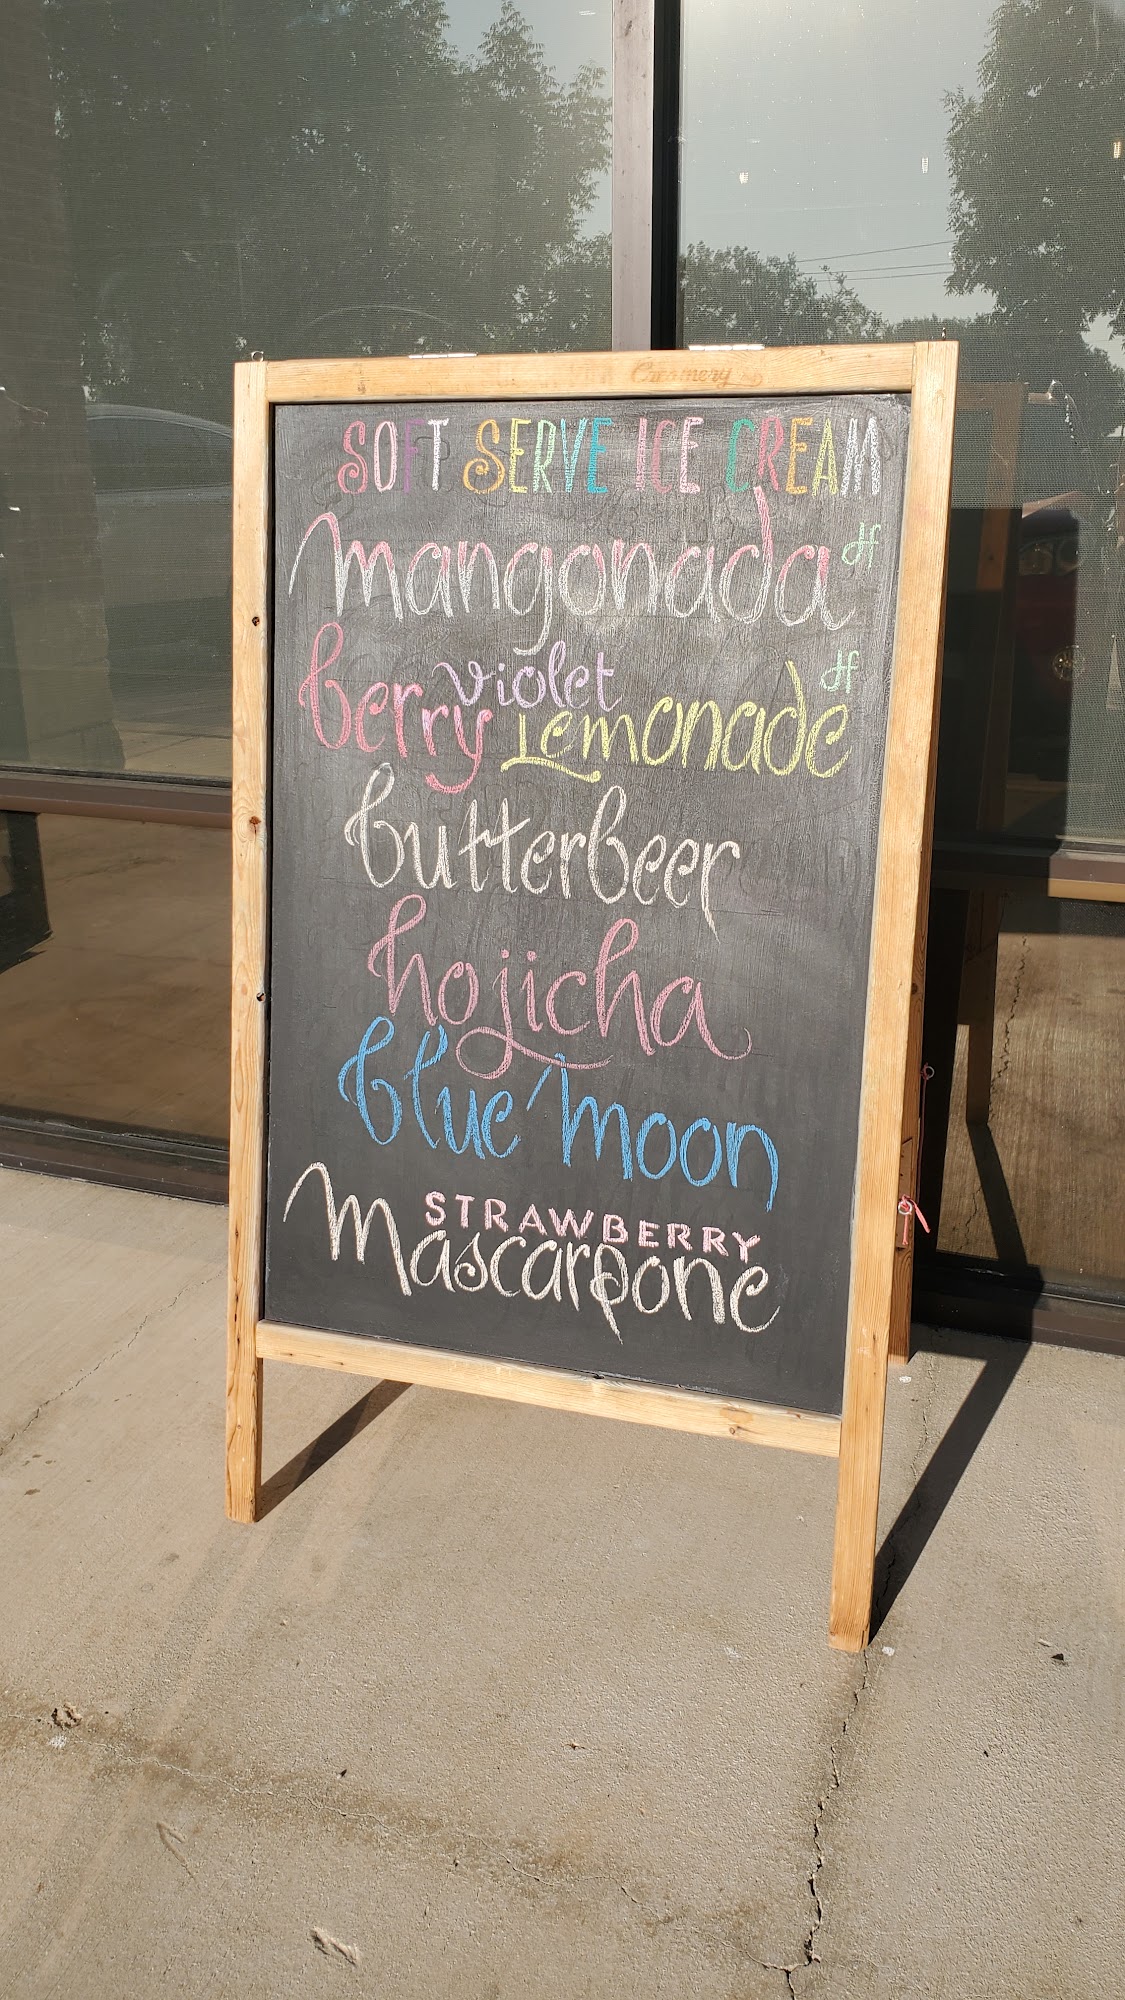 Creamery
SOFT SERVE ICE CREAM
mangonada df
berry violet Lemonade df
butterbeer
hojicha
blue moon
STRAWBERRY
Mascarpone